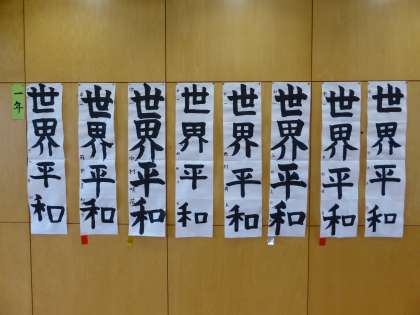 一年
世界平和
世界平和
世界平和
世界平和
世界平和
世界平和
世界平和
世界平和